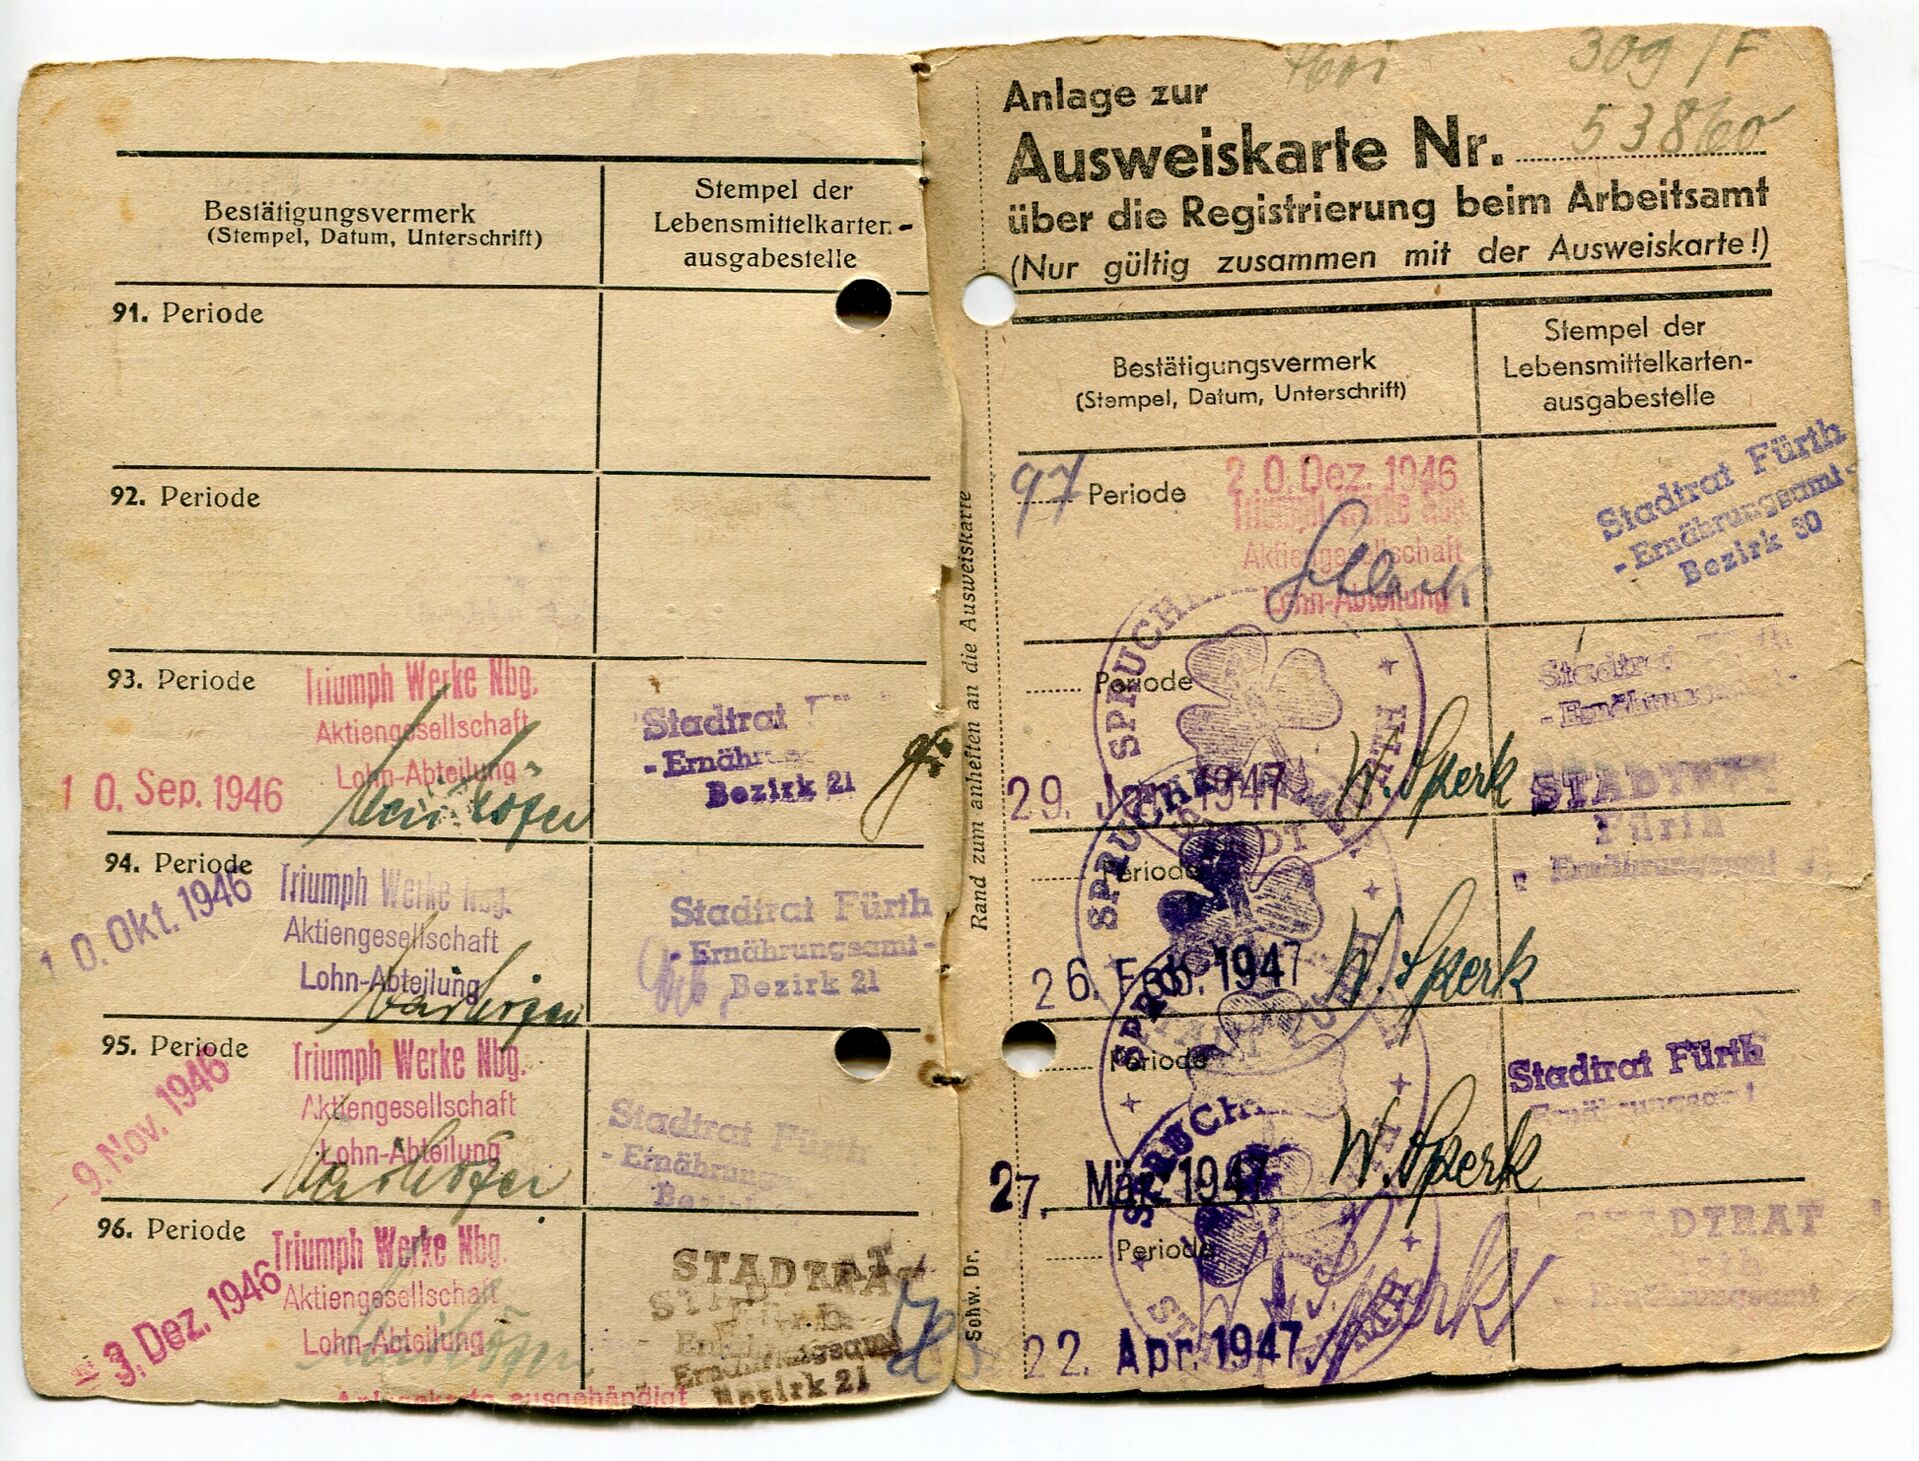 Bestätigungsvermerk
(Stempel, Datum, Unterschrift)
Stempel der
Lebensmittelkarten-
ausgabestelle
91. Periode
92. Periode
93. Periode
Triumph Werke Nbg.
Aktiengesellschaft
Lohn-Abteilung
10. Sep. 1946
Stadtrat
- Ernähr
Bezirk 21
94. Periode
10. Okt. 1946
Triumph Werke Nbg.
Aktiengesellschaft
Lohn-Abteilung
Stadtrat Fürth
- Ernährungsamt-
Bezirk 21
95. Periode
- 9. Nov. 1946
Triumph Werke Nbg.
Aktiengesellschaft
Lohn-Abteilung
Stadtrat Fürth
- Ernährungs
Bezirk
96. Periode
3. Dez. 1946
Triumph Werke Nbg.
Aktiengesellschaft
Lohn-Abteilung
ausgehändigt
STADTRAT
Fürth
Ernährungsamt
Bezirk 21
Rand zum anheften an die Ausweiskarte
Schw. Dr.
309/F
Anlage zur
Ausweiskarte Nr. 53860
über die Registrierung beim Arbeitsamt
(Nur gültig zusammen mit der Ausweiskarte!)
Bestätigungsvermerk
(Stempel, Datum, Unterschrift)
Stempel der
Lebensmittelkarten-
ausgabestelle
97 Periode
20. Dez. 1946
Triumph Werke Nbg.
Aktiengesellschaft
Lohn-Abteilung
Stadtrat Fürth
- Ernährungsamt-
Bezirk 30
Periode
29. Jan. 1947
W. Sperk
Stadtrat
- Ernährungsamt-
STADTRAT
Fürth
Ernährungsamt
Periode
26. Feb. 1947
W. Sperk
Periode
27. März 1947
W. Sperk
Stadtrat Fürth
Ernährungsamt
Periode
22. Apr. 1947
W. Sperk
STADTRAT
Fürth
Ernährungsamt